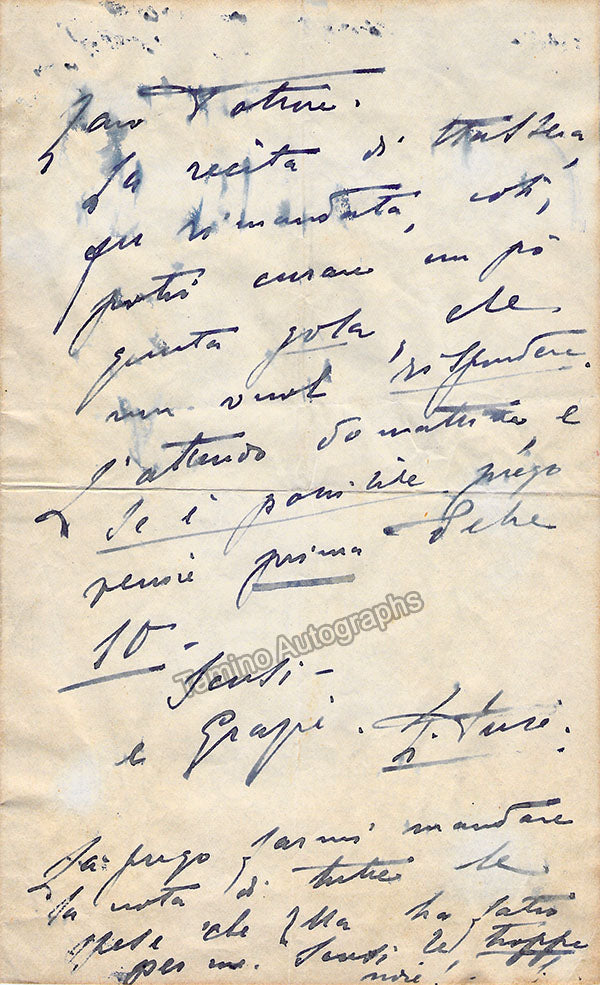 Caro Dottore.
La recita di stassera
fu rimandata, così,
potrò curare un pò
questa gola, che
non vuol rispondere.
L'attendo domattina, e
se è possibile prego
venire prima delle
10 -
Scusi -
e Grazie. E. Duse.
La prego farmi mandare
la nota di tutte le
spese che Ella ha fatto
per me. Scusi le troppe
noie!
Tamino Autographs